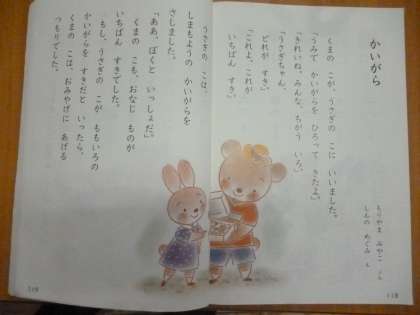 かいがら
もりやま みやこ ぶん
しもの めぐみ え
くまの こが、うさぎの こに いいました。
「うみで かいがらを ひろって きたよ。」
「きれいね。みんな、ちがう いろ。」
「うさぎちゃん、
どれが すき。」
「これよ、これが
いちばん すき。」
118
うさぎの こは、
しまもようの かいがらを
さしました。
「ああ、ぼくと いっしょだ。」
くまの こも、おなじ ものが
いちばん すきでした。
もし、うさぎの こが ももいろの
かいがらを すきだと いったら、
くまの こは、おみやげに あげる
つもりでした。
119